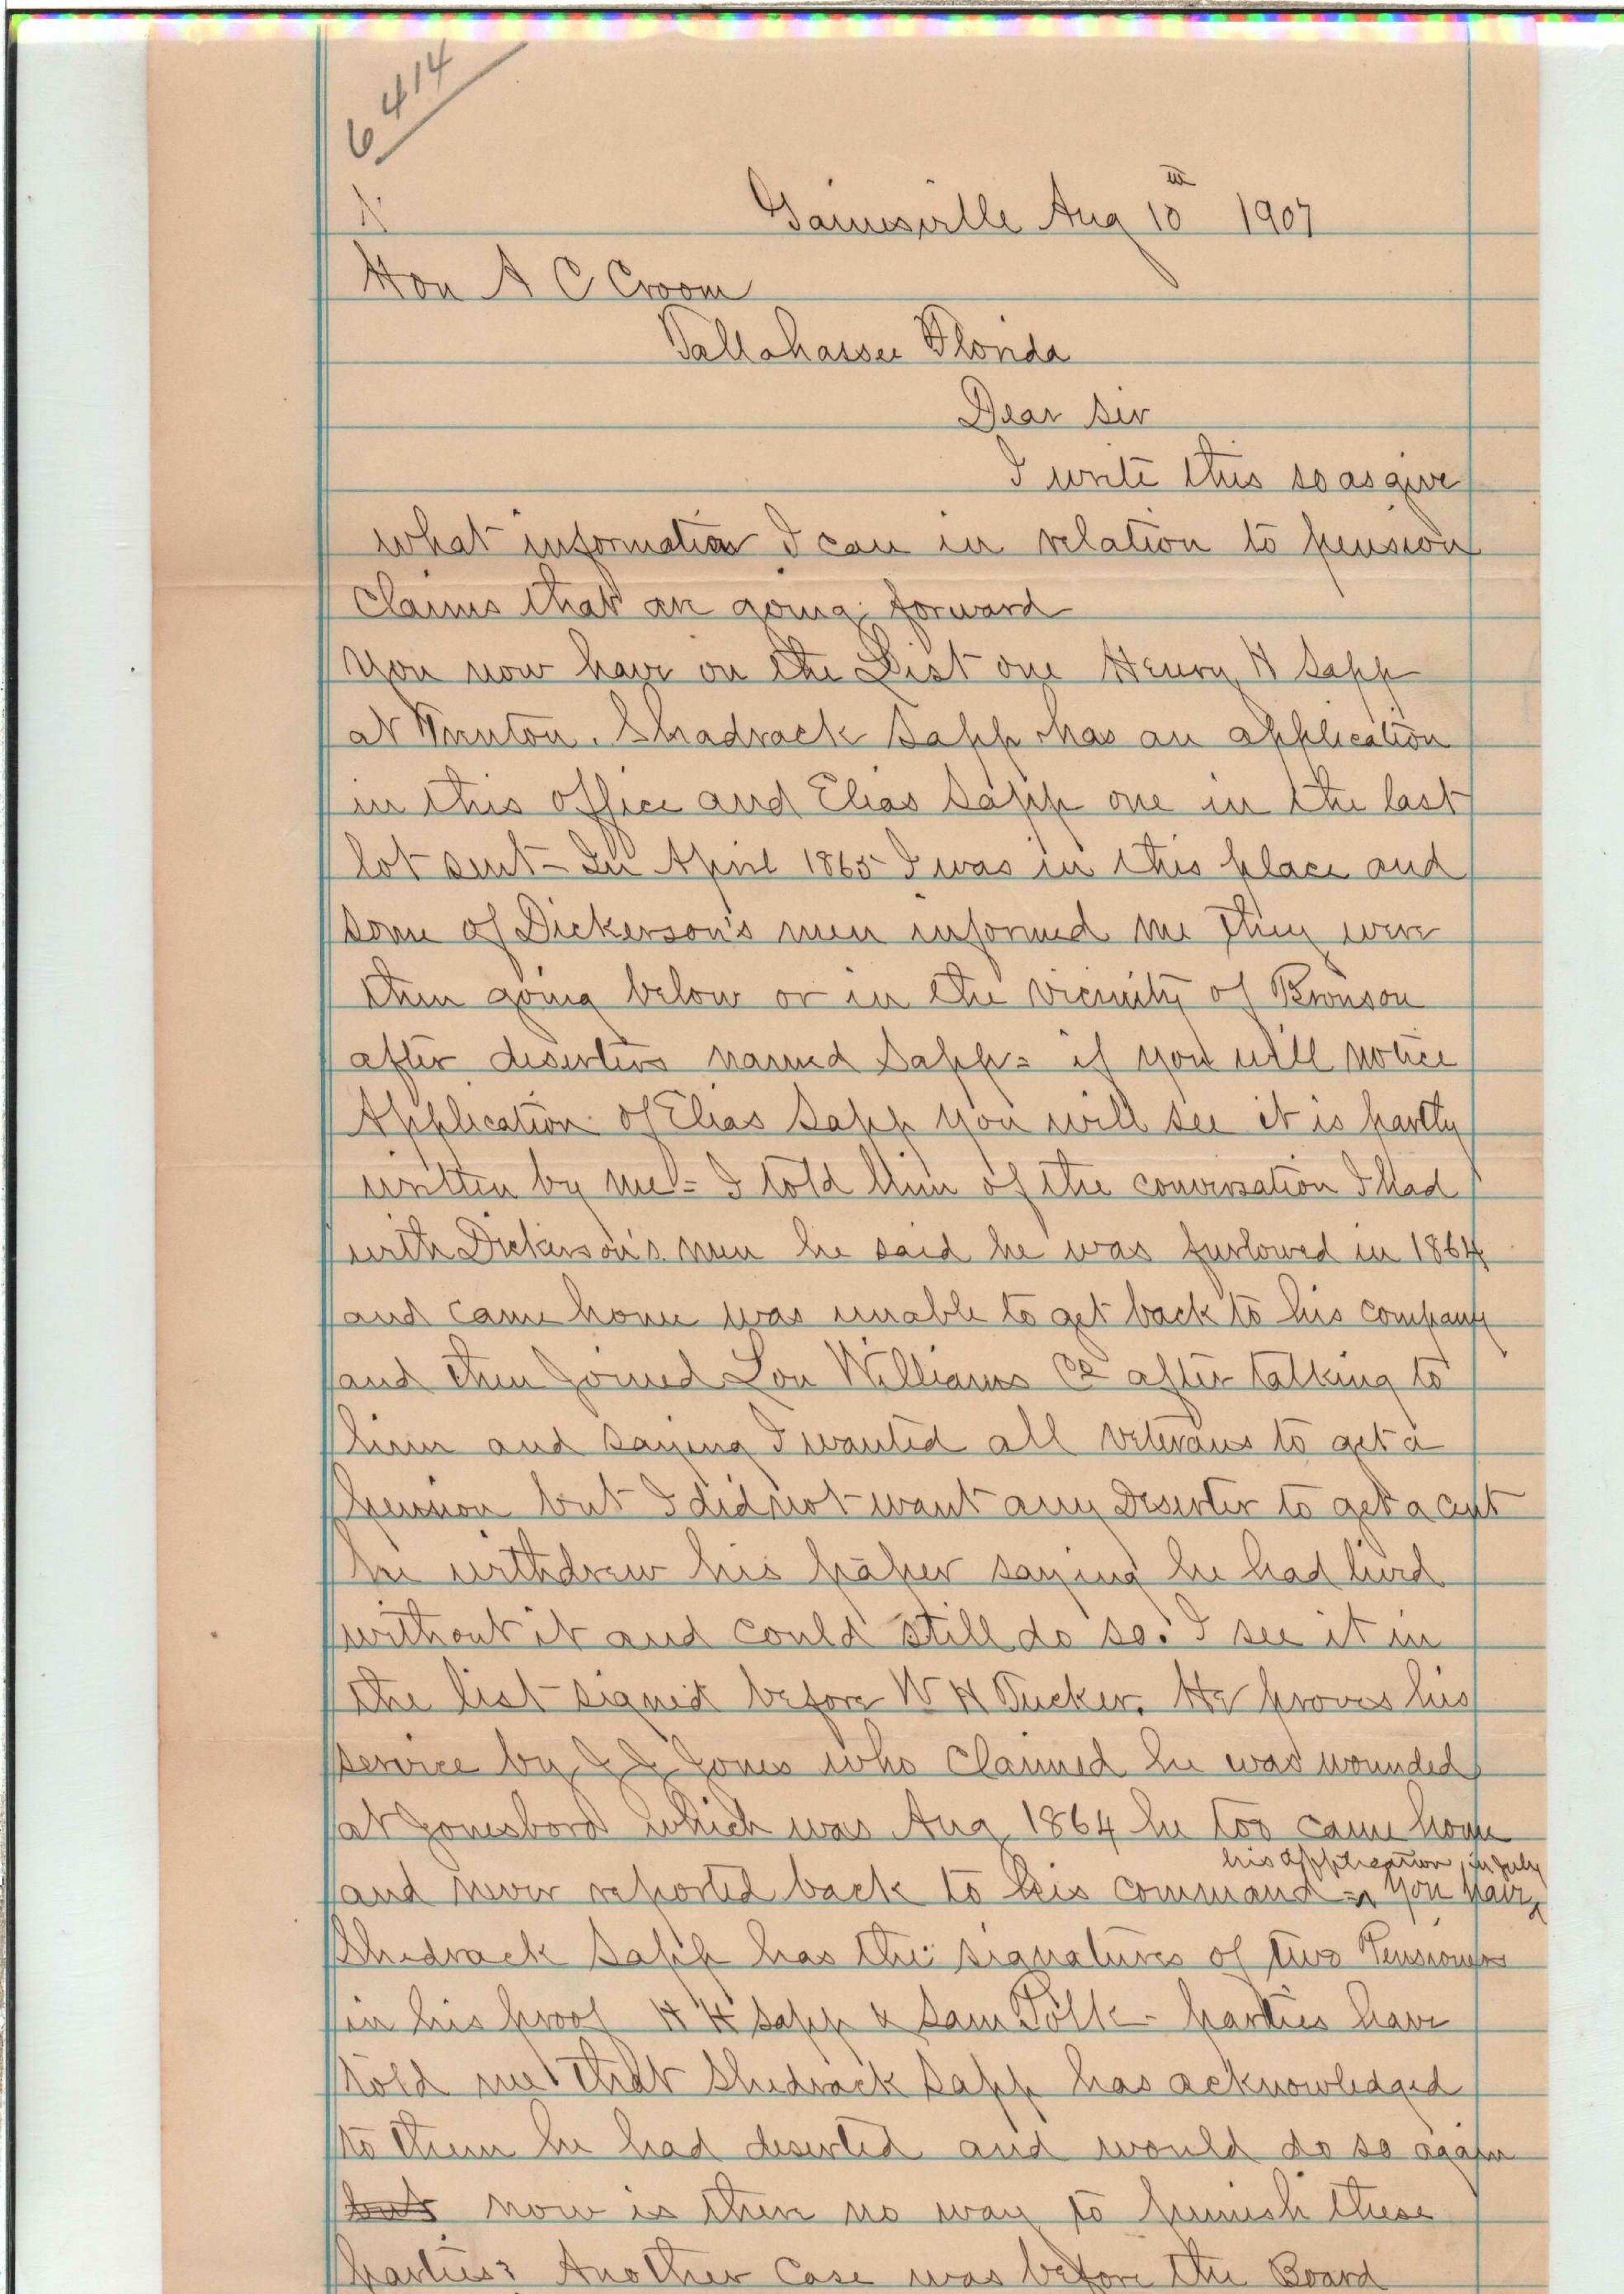 6414
Gainesville Aug 10th 1907
Hon A C Croom
Tallahassee Florida
Dear Sir
I write this so as give
what information I can in relation to pension
claims that are going forward
You now have on the List one Henry H Sapp
at Trenton. Shadrack Sapp has an application
in this office and Elias Sapp one in the last
lot sent - In April 1865 I was in this place and
some of Dickerson's men informed me they were
then going below or in the vicinity of Bronson
after deserters named Sapp = if you will notice
Application of Elias Sapp you will see it is partly
written by me = I told him of the conversation I had
with Dickerson's men he said he was furlowed in 1864
and came home was unable to get back to his company
and then joined Lou Williams Co after talking to
him and saying I wanted all veterans to get a
pension but I did not want any Deserter to get a cent
he withdrew his paper saying he had lived
without it and could still do so. I see it in
the list signed before W H Tucker. He proves his
service by J J Jones who claimed he was wounded
at Jonesboro which was Aug 1864 he too came home
and never reported back to his command = You have his application in July
Shedrack Sapp has the signatures of two Pensioners
in his proof H H Sapp & Sam Polk - parties have
told me that Shedrack Sapp has acknowledged
to them he had deserted and would do so again
but now is there no way to punish these
parties? Another case was before the Board